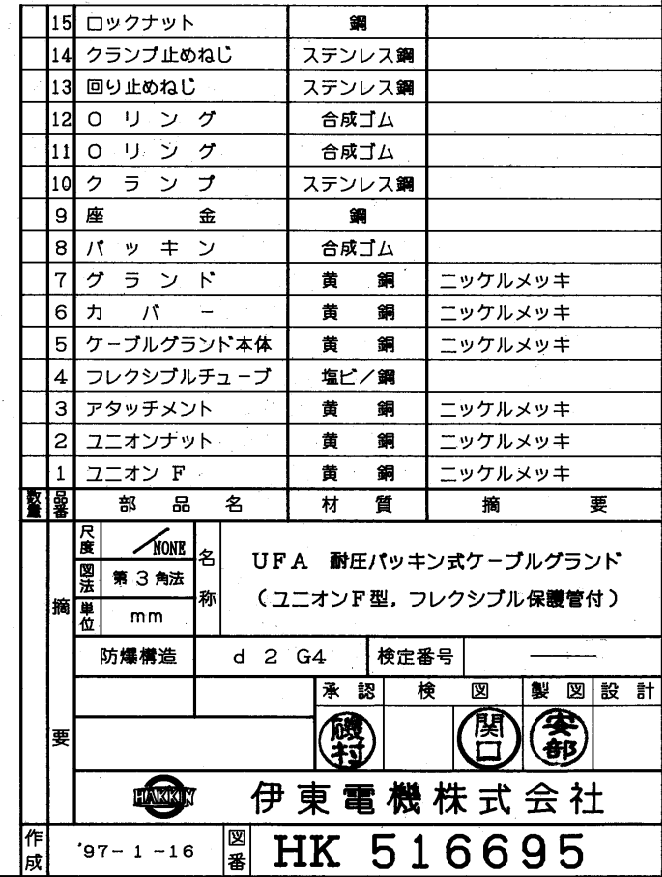 15 ロックナット 鋼
14 クランプ止めねじ ステンレス鋼
13 回り止めねじ ステンレス鋼
12 Oリング 合成ゴム
11 Oリング 合成ゴム
10 クランプ ステンレス鋼
9 座金 鋼
8 パッキン 合成ゴム
7 グランド 黄銅 ニッケルメッキ
6 カバー 黄銅 ニッケルメッキ
5 ケーブルグランド本体 黄銅 ニッケルメッキ
4 フレクシブルチューブ 塩ビ/鋼
3 アタッチメント 黄銅 ニッケルメッキ
2 ユニオンナット 黄銅 ニッケルメッキ
1 ユニオンF 黄銅 ニッケルメッキ
数量 品番 部品名 材質 摘要
摘要
尺度 /NONE
図法 第3角法
単位 mm
名称
UFA 耐圧パッキン式ケーブルグランド
(ユニオンF型, フレクシブル保護管付)
防爆構造 d2G4 検定番号 ――
承認 検図 製図 設計
磯村 関口 安部
HAKKIN 伊東電機株式会社
作成 '97-1-16 図番 HK 516695